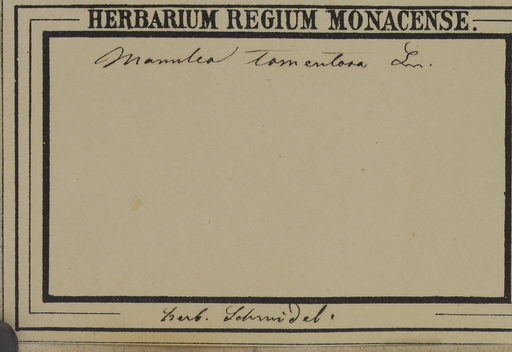 HERBARIUM REGIUM MONACENSE.
Manulea tomentosa Ln.
Herb. Schmidel.